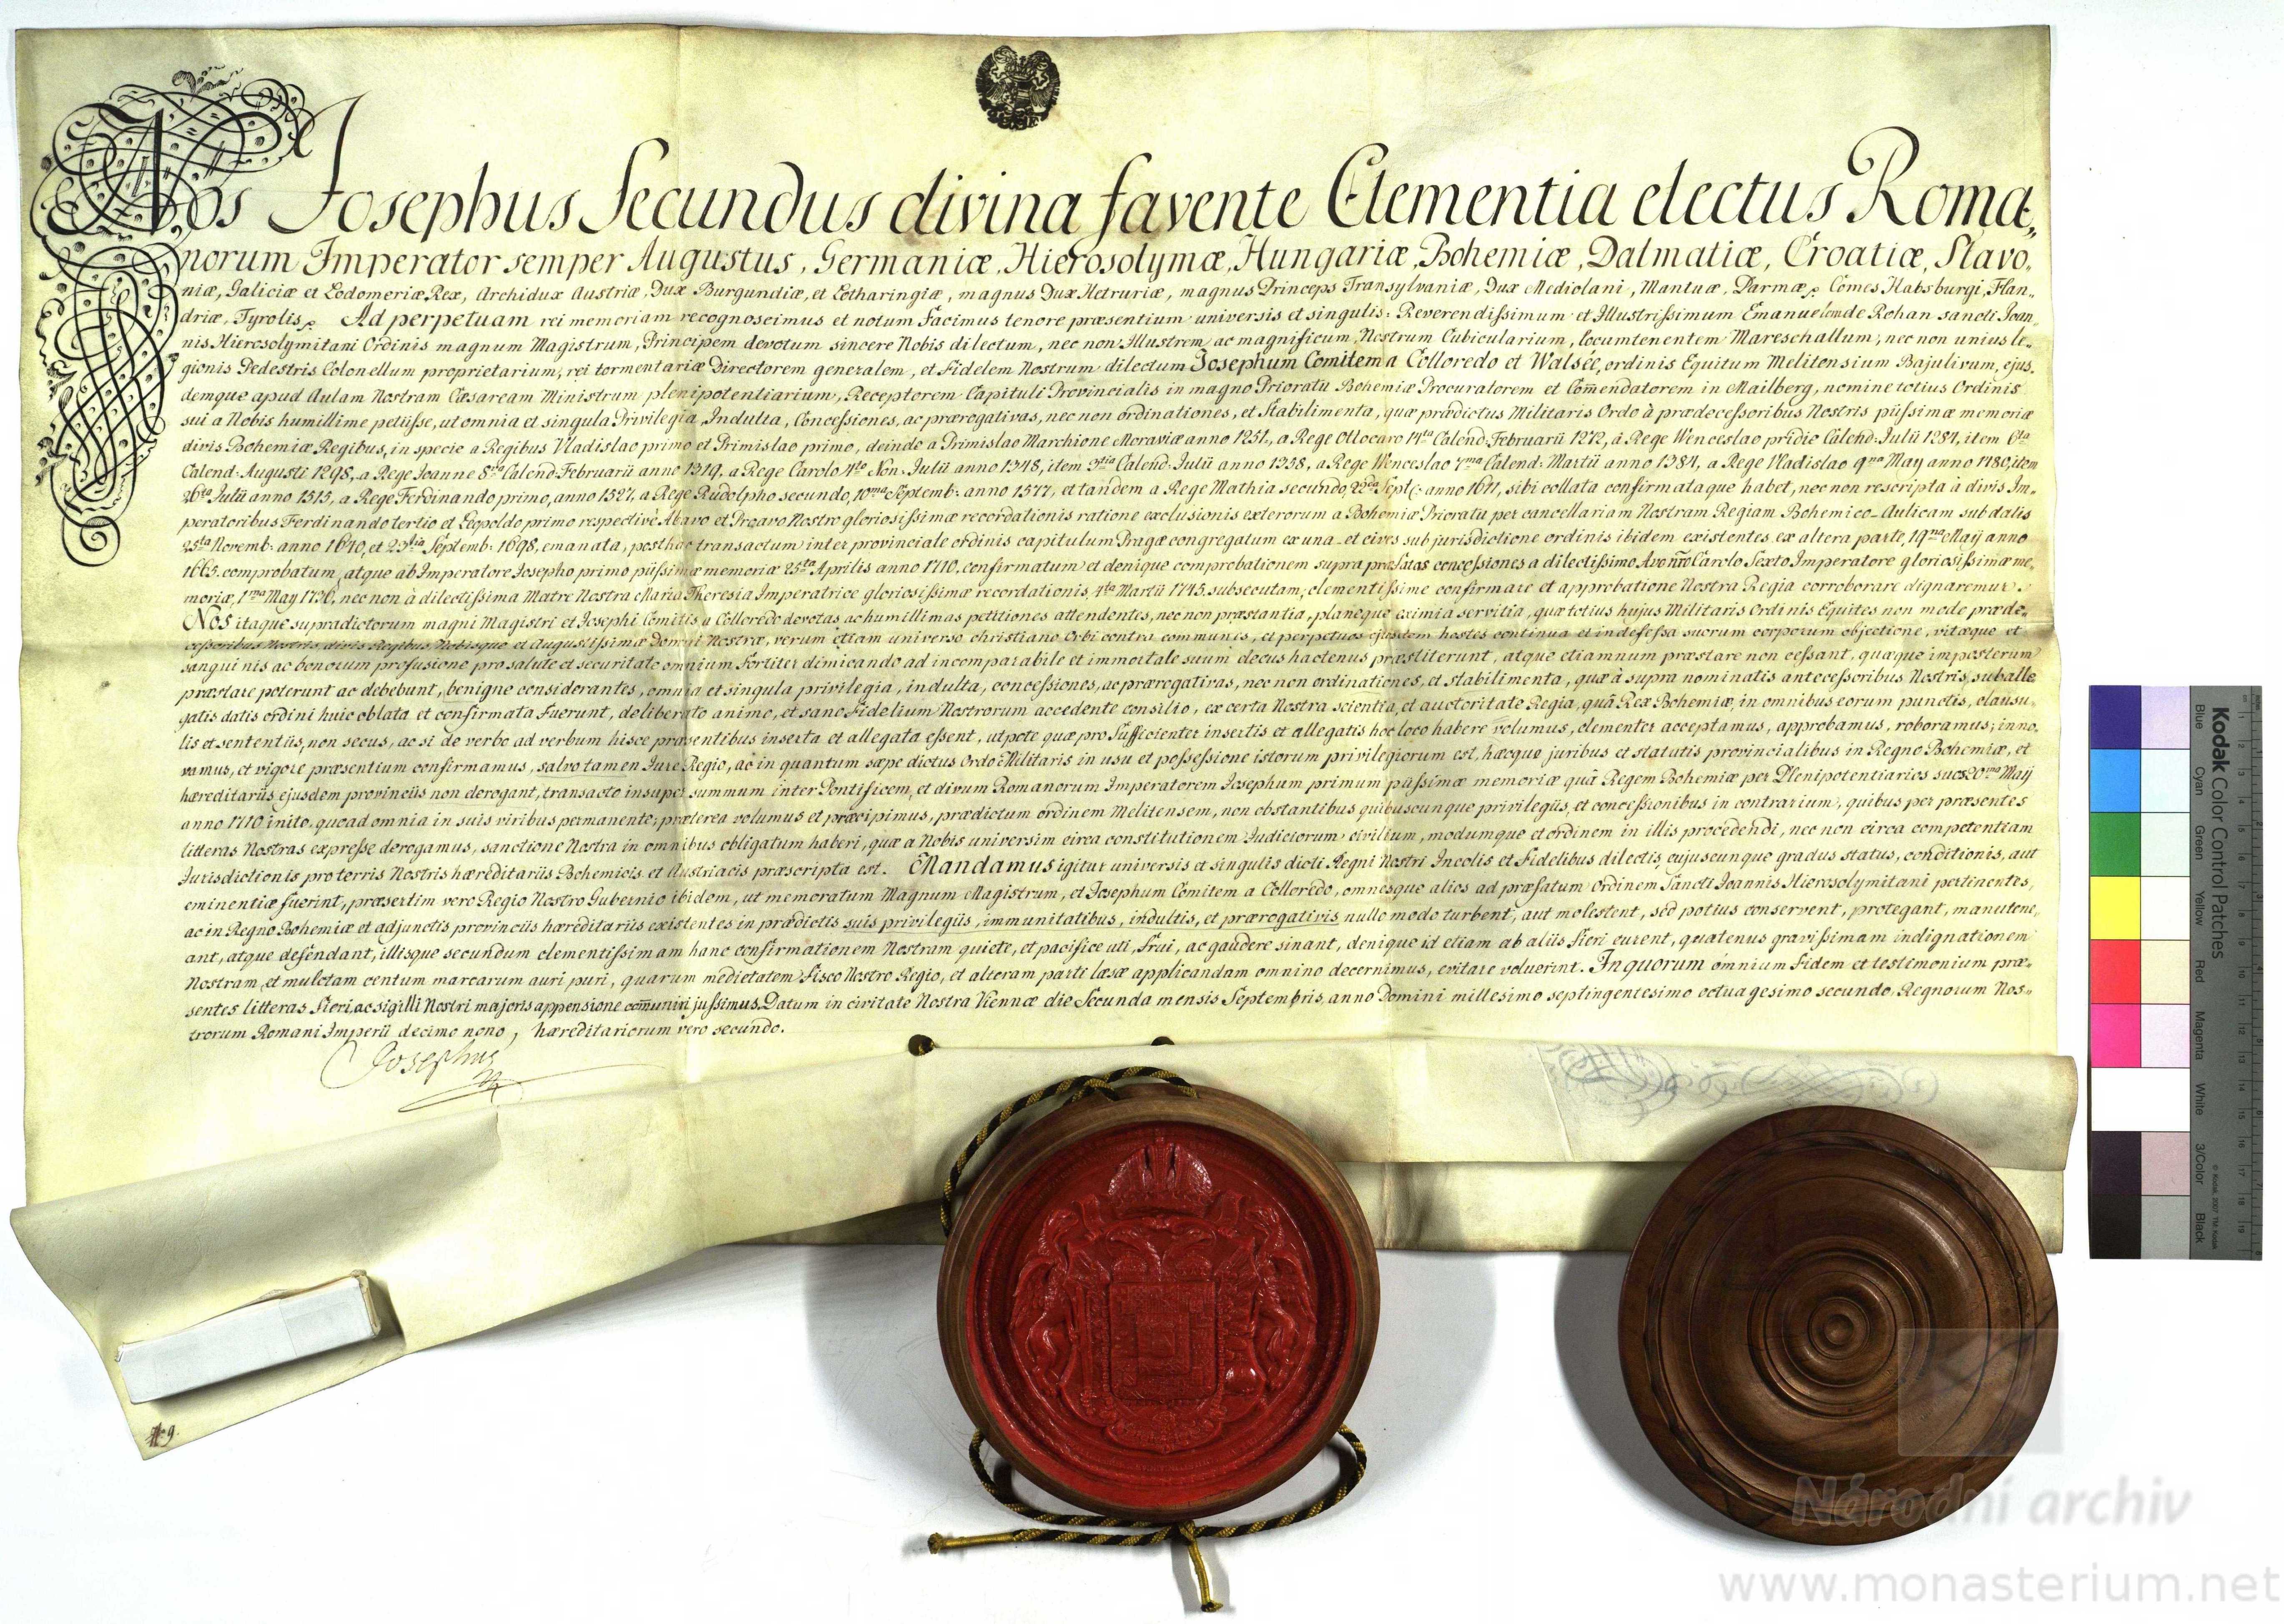 Nos Josephus Secundus divina favente Clementia electus Roma„
norum Imperator semper Augustus, Germaniæ, Hierosolymæ, Hungariæ, Bohemiæ, Dalmatiæ, Croatiæ, Slavo„
niæ, Galiciæ et Lodomeriæ Rex, Archidux Austriæ, Dux Burgundiæ, et Lotharingiæ, magnus Dux Hetruriæ, magnus Princeps Transylvaniæ, Dux Mediolani, Mantuæ, Parmæ, Comes Habsburgi, Flan„
driæ, Tyrolis, Ad perpetuam rei memoriam recognoscimus et notum facimus tenore præsentium universis et singulis: Reverendissimum et Illustrissimum Emanuelem de Rohan sancti Joan„
nis Hierosolymitani Ordinis magnum Magistrum, Principem devotum sincere Nobis dilectum, nec non Illustrem ac magnificum Nostrum Cubicularium, locumtenentem Mareschallum, nec non unius le„
gionis Pedestris Colonellum proprietarium, rei tormentariæ Directorem generalem, et Fidelem Nostrum dilectum Josephum Comitem a Colloredo et Walsée, ordinis Equitum Melitensium Bajulivum, ejus„
demque apud Aulam Nostram Cæsaream Ministrum plenipotentiarium, Receptorem Capituli Provincialis in magno Prioratu Bohemiæ Procuratorem et Com̃endatorem in Mailberg, nomine totius Ordinis
sui a Nobis humillime petiisse, ut omnia et singula Privilegia, Indulta, Concessiones, ac prærogativas, nec non ordinationes, et Stabilimenta, quæ prædictus Militaris Ordo à prædecessoribus Nostris piissimæ memoriæ
divis Bohemiæ Regibus, in specie a Regibus Vladislao primo et Primislao primo, deinde a Primislao Marchione Moraviæ anno 1251, a Rege Ottocaro 14ta Calend: Februarii 1272, à Rege Wenceslao pridie Calend: Julii 1284, item 6ta
Calend: Augusti 1298, a Rege Joanne 8va Calend: Februarii anno 1319. a Rege Carolo 4to Non: Julii anno 1348, item 3tia Calend: Julii anno 1358, a Rege Wenceslao 7ma Calend: Martii anno 1384, a Rege Vladislao 9na May anno 1480, item
26ta Julii anno 1515, a Rege Ferdinando primo, anno 1527, a Rege Rudolpho secundo, 10ma Septemb: anno 1577, et tandem a Rege Mathia secundo, 22da Sept: anno 1611, sibi collata confirmataque habet, nec non rescripta à divis Im„
peratoribus Ferdinando tertio et Leopoldo primo respective Abavo et Proavo Nostro gloriosissimæ recordationis ratione exclusionis exterorum a Bohemiæ Prioratu per cancellariam Nostram Regiam Bohemico-Aulicam sub datis
25ta Novemb: anno 1640, et 23tia Septemb: 1698, emanata, posthac transactum inter provinciale ordinis capitulum Pragæ congregatum ex una et cives sub jurisdictione ordinis ibidem existentes ex altera parte, 19na Maij anno
1665. comprobatum, atque ab Imperatore Josepho primo piissimæ memoriæ 25ta Aprilis anno 1710. confirmatum et denique comprobationem supra præfatas concessiones a dilectissimo Avo nr̃o Carolo Sexto Imperatore gloriosissimæ me„
moriæ, 1ma May 1736, nec non à dilectissima Matre Nostra Maria Theresia Imperatrice gloriosissimæ recordationis, 4ta Martii 1745. subsecutam, clementissime confirmare et approbatione Nostra Regia corroborare dignaremur.
Nos itaque supradictorum magni Magistri et Josephi Comitis a Colloredo devotas ac humillimas petitiones attendentes, nec non præstantia, planeque eximia servitia, quæ totius hujus Militaris Ordinis Equites non modo præde„
cessoribus Nostris divis Regibus, Nobisque et Augustissimæ Domui Nostræ, verum etiam universo christiano Orbi contra communis, et perpetuos ejusdem hostes continua et indefessa suorum corporum objectione, vitæque et
sanguinis ac bonorum profusione pro salute et securitate omnium fortiter dimicando ad incomparabile et immortale suum decus hactenus præstiterunt, atque etiamnum præstare non cessant, quæque imposterum
præstare poterunt ac debebunt, benigne considerantes, omnia et singula privilegia, indulta, concessiones, ac prærogativas, nec non ordinationes, et stabilimenta, quæ à supra nominatis antecessoribus Nostris, suballe„
gatis datis ordini huic oblata et confirmata fuerunt, deliberato animo, et sano Fidelium Nostrorum accedente consilio, ex certa Nostra scientia, et auctoritate Regia, quâ Rex Bohemiæ, in omnibus eorum punctis, clausu„
lis et sententiis, non secus, ac si de verbo ad verbum hisce præsentibus inserta et allegata essent, utpote quæ pro sufficienter insertis et allegatis hoc loco habere volumus, clementer acceptamus, approbamus, roboramus, inno„
vamus, et vigore præsentium confirmamus, salvo tamen Jure Regio, ac in quantum sæpe dictus Ordo Militaris in usu et possessione istorum privilegiorum est, hæcque juribus et statutis provincialibus in Regno Bohemiæ, et
hæreditariis ejusdem provinciis non derogant, transacto insuper summum inter Pontificem, et divum Romanorum Imperatorem Josephum primum piissimæ memoriæ quâ Regem Bohemiæ per Plenipotentiarios suos 20ma Maij
anno 1710 inito, quoad omnia in suis viribus permanente; præterea volumus et præcipimus, prædictum ordinem Melitensem, non obstantibus quibuscunque privilegiis, et concessionibus in contrarium, quibus per præsentes
litteras Nostras expresse derogamus, sanctione Nostra in omnibus obligatum haberi, quæ a Nobis universim circa constitutionem Judiciorum civilium, modumque et ordinem in illis procedendi, nec non circa competentiam
Jurisdictionis pro terris Nostris hæreditariis Bohemicis et Austriacis præscripta est. Mandamus igitur universis et singulis dicti Regni Nostri Incolis et Fidelibus dilectis, cujuscunque gradus status, conditionis, aut
eminentiæ fuerint, præsertim vero Regio Nostro Gubernio ibidem, ut memoratum Magnum Magistrum, et Josephum Comitem a Colloredo, omnesque alios ad præfatum Ordinem Sancti Joannis Hierosolymitani pertinentes,
ac in Regno Bohemiæ et adjunctis provinciis hæreditariis existentes in prædictis suis privilegiis, immunitatibus, indultis, et prærogativis nullo modo turbent, aut molestent, sed potius conservent, protegant, manutene„
ant, atque defendant, illisque secundum clementissimam hanc confirmationem Nostram quiete, et pacifice uti, frui, ac gaudere sinant, denique id etiam ab aliis fieri curent, quatenus gravissimam indignationem
Nostram, et mulctam centum marcarum auri puri, quarum medietatem Fisco Nostro Regio, et alteram parti læsæ applicandam omnino decernimus, evitare voluerint. In quorum omnium fidem et testimonium præ„
sentes litteras fieri, ac sigilli Nostri majoris appensione com̃uniri jussimus. Datum in civitate Nostra Viennæ die Secunda mensis Septembris, anno Domini millesimo septingentesimo octuagesimo secundo, Regnorum Nos„
trorum Romani Imperii decimo nono, hæreditariorum vero secundo.
Josephus
Kodak Color Control Patches
Blue Cyan Green Yellow Red Magenta White 3/Color Black
© Kodak, 2007 TM: Kodak
Národní archiv
www.monasterium.net